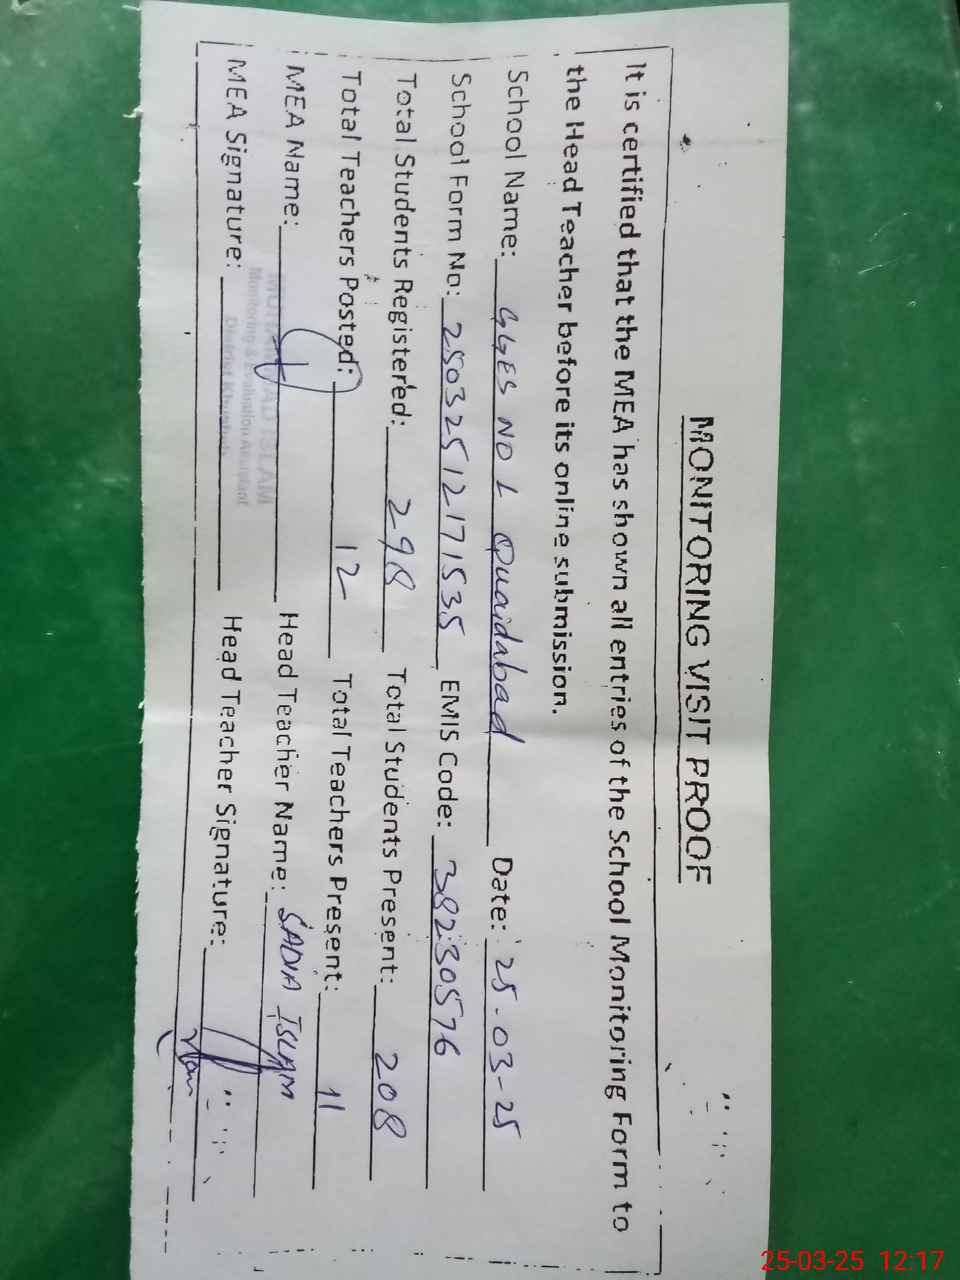 MONITORING VISIT PROOF
It is certified that the MEA has shown all entries of the School Monitoring Form to
the Head Teacher before its online submission.
School Name: GGES NO 1 Quaidabad Date: 25-03-25
School Form No: 25032512171535 EMIS Code: 38230576
Total Students Registered: 298 Total Students Present: 208
Total Teachers Posted: 12 Total Teachers Present: 11
MEA Name: MUHAMMAD ISLAM Head Teacher Name: SADIA ISLAM
Monitoring & Evaluation Assistant
District Khushab
MEA Signature: Head Teacher Signature:
25-03-25 12:17